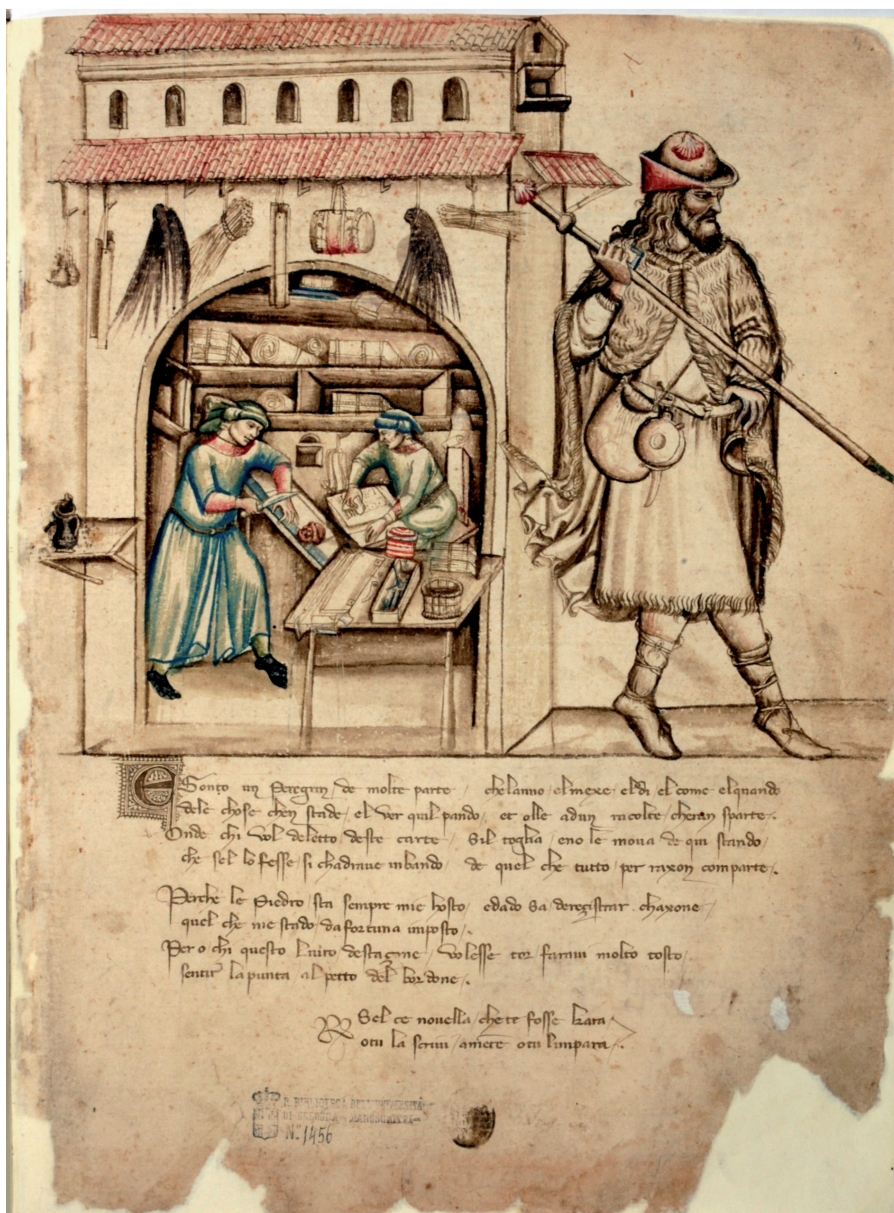 E Sonto un Peregrin / de molte parte / chelanno / elmexe / eldi el come elquando
dele chose chen stade / el ver quil pando / et olle adun racolte / cheran sparte .
Onde chi vol deletto / deste carte / Sil toglia / eno le mova de qui stando /
che sel lo fesse / si chadrave inbando / de quel che tutto / per raxon comparte .
Perche le Piedro / sta sempre mie hosto / edado sa deregistrar chaxone /
quel che me stado / da fortuna imposto .
Pero chi questo Livro destagnone / volesse tor / faravi molto tosto .
sentir la punta / al petto del bordone .
R Sel ce novella / che te fosse kara /
otu la scrivi / amente otu limpara .
R. BIBLIOTECA DELL'UNIVERSITÀ
DI BOLOGNA - MANOSCRITTI
N.º 1456